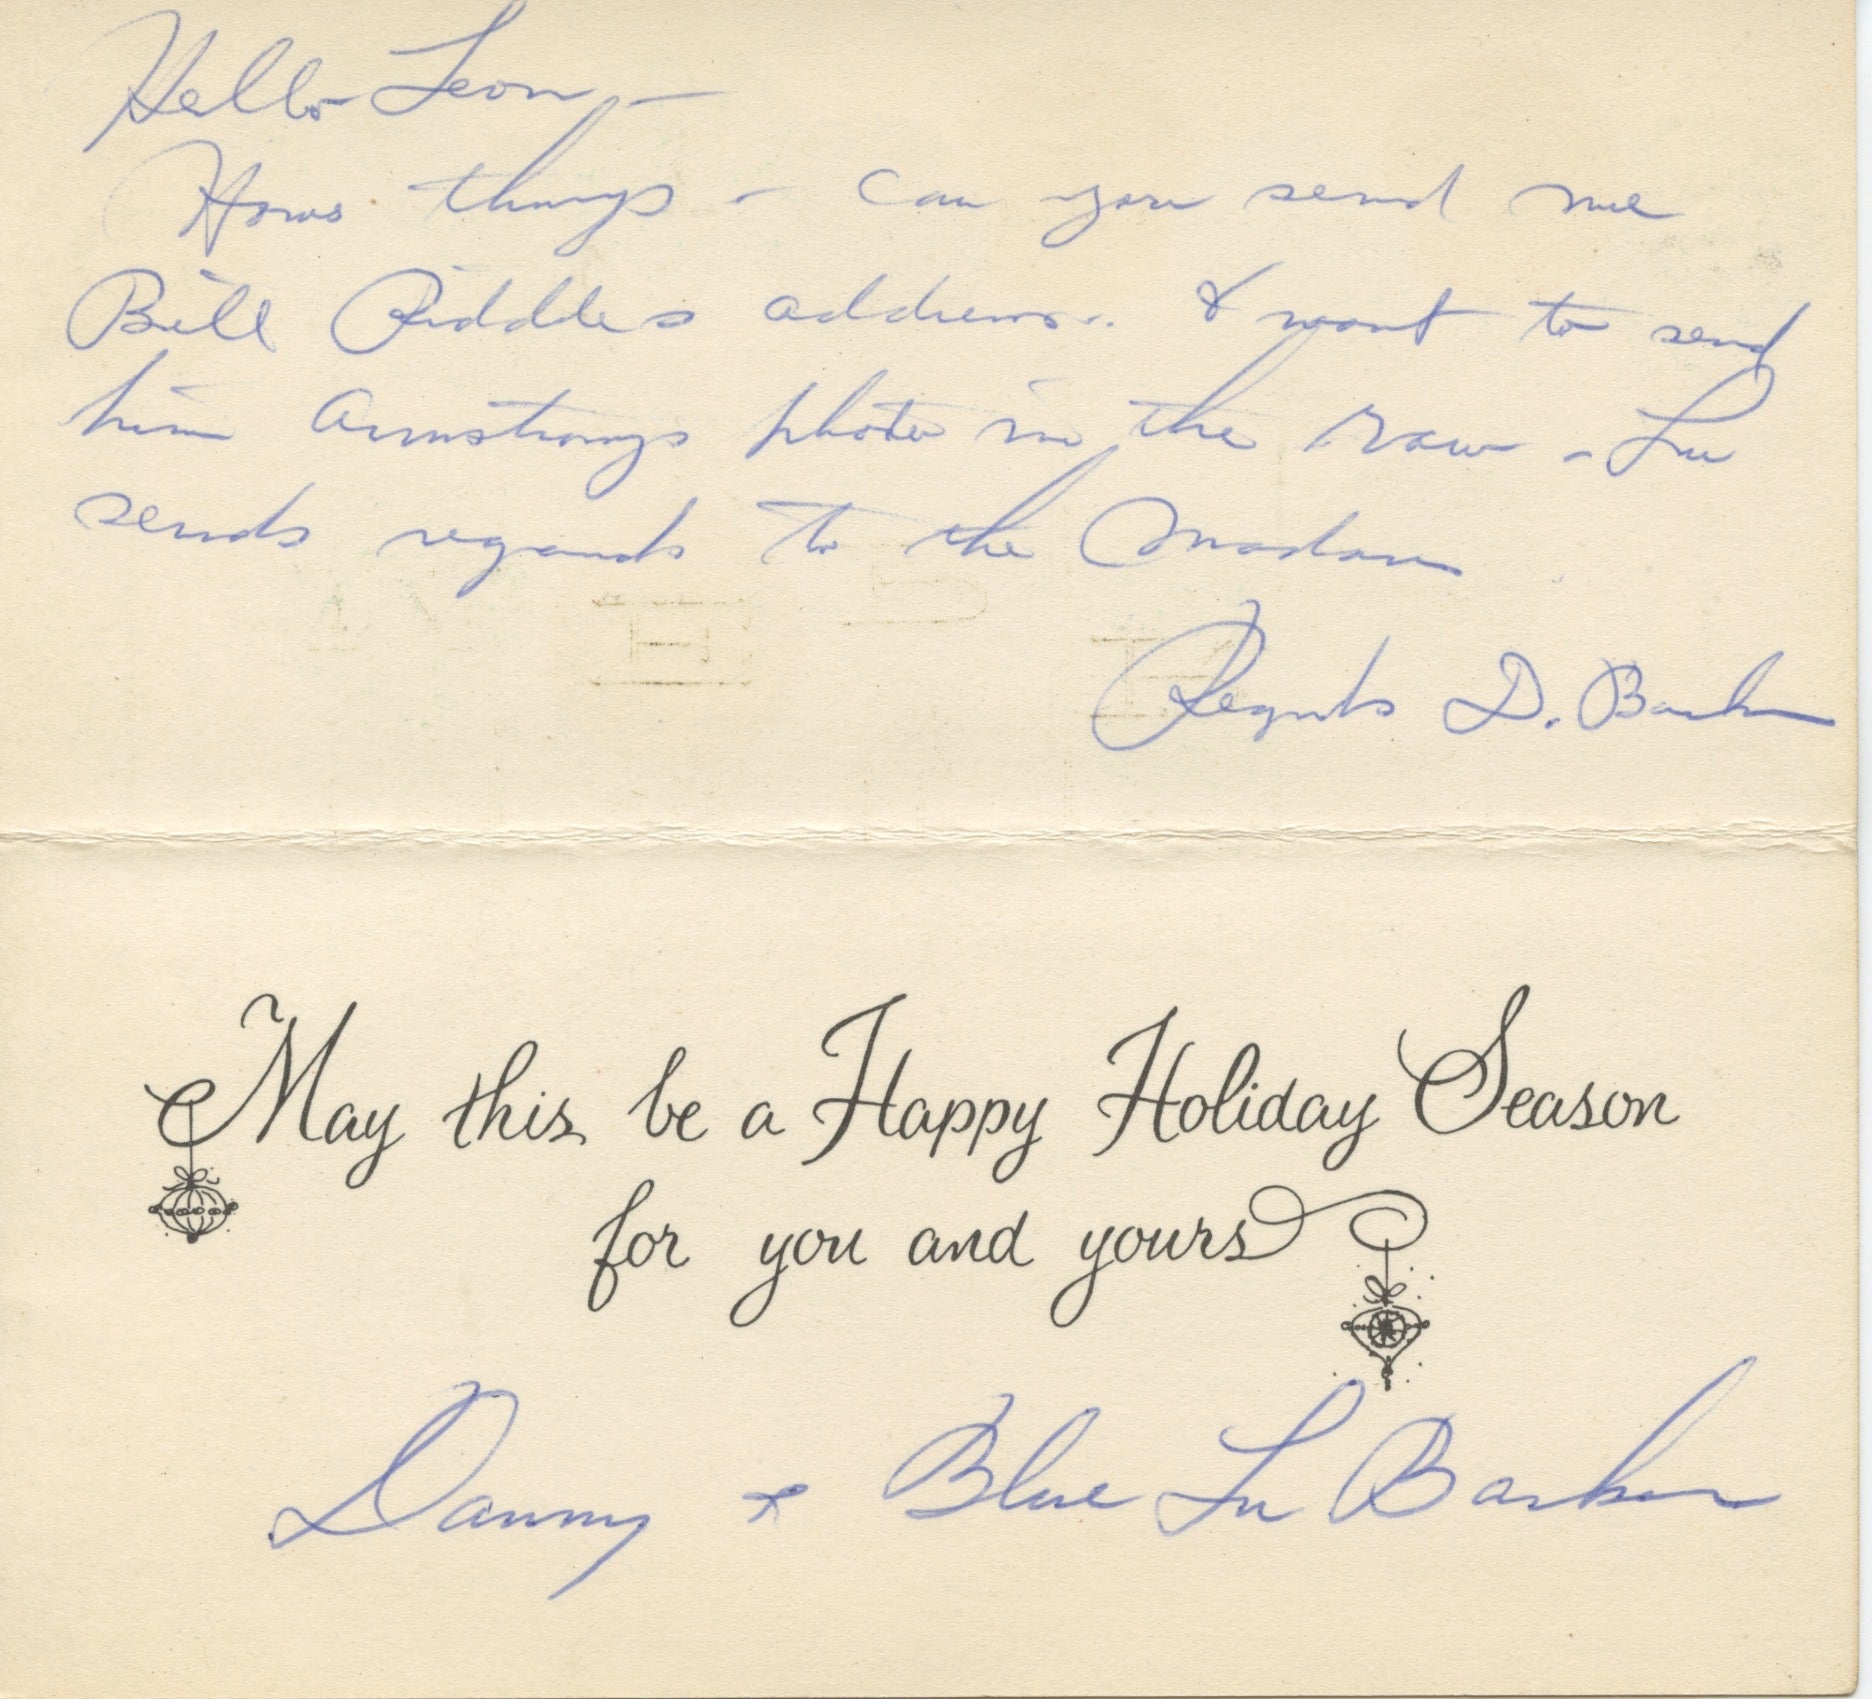 Hello Leon, —
Hows things - Can you send me
Bill Riddles address. I want to send
him Armstrongs photo in the raw - Lu
sends regards to the Madam
Regards D. Barker
May this be a Happy Holiday Season
for you and yours
Danny & Blue Lu Barker